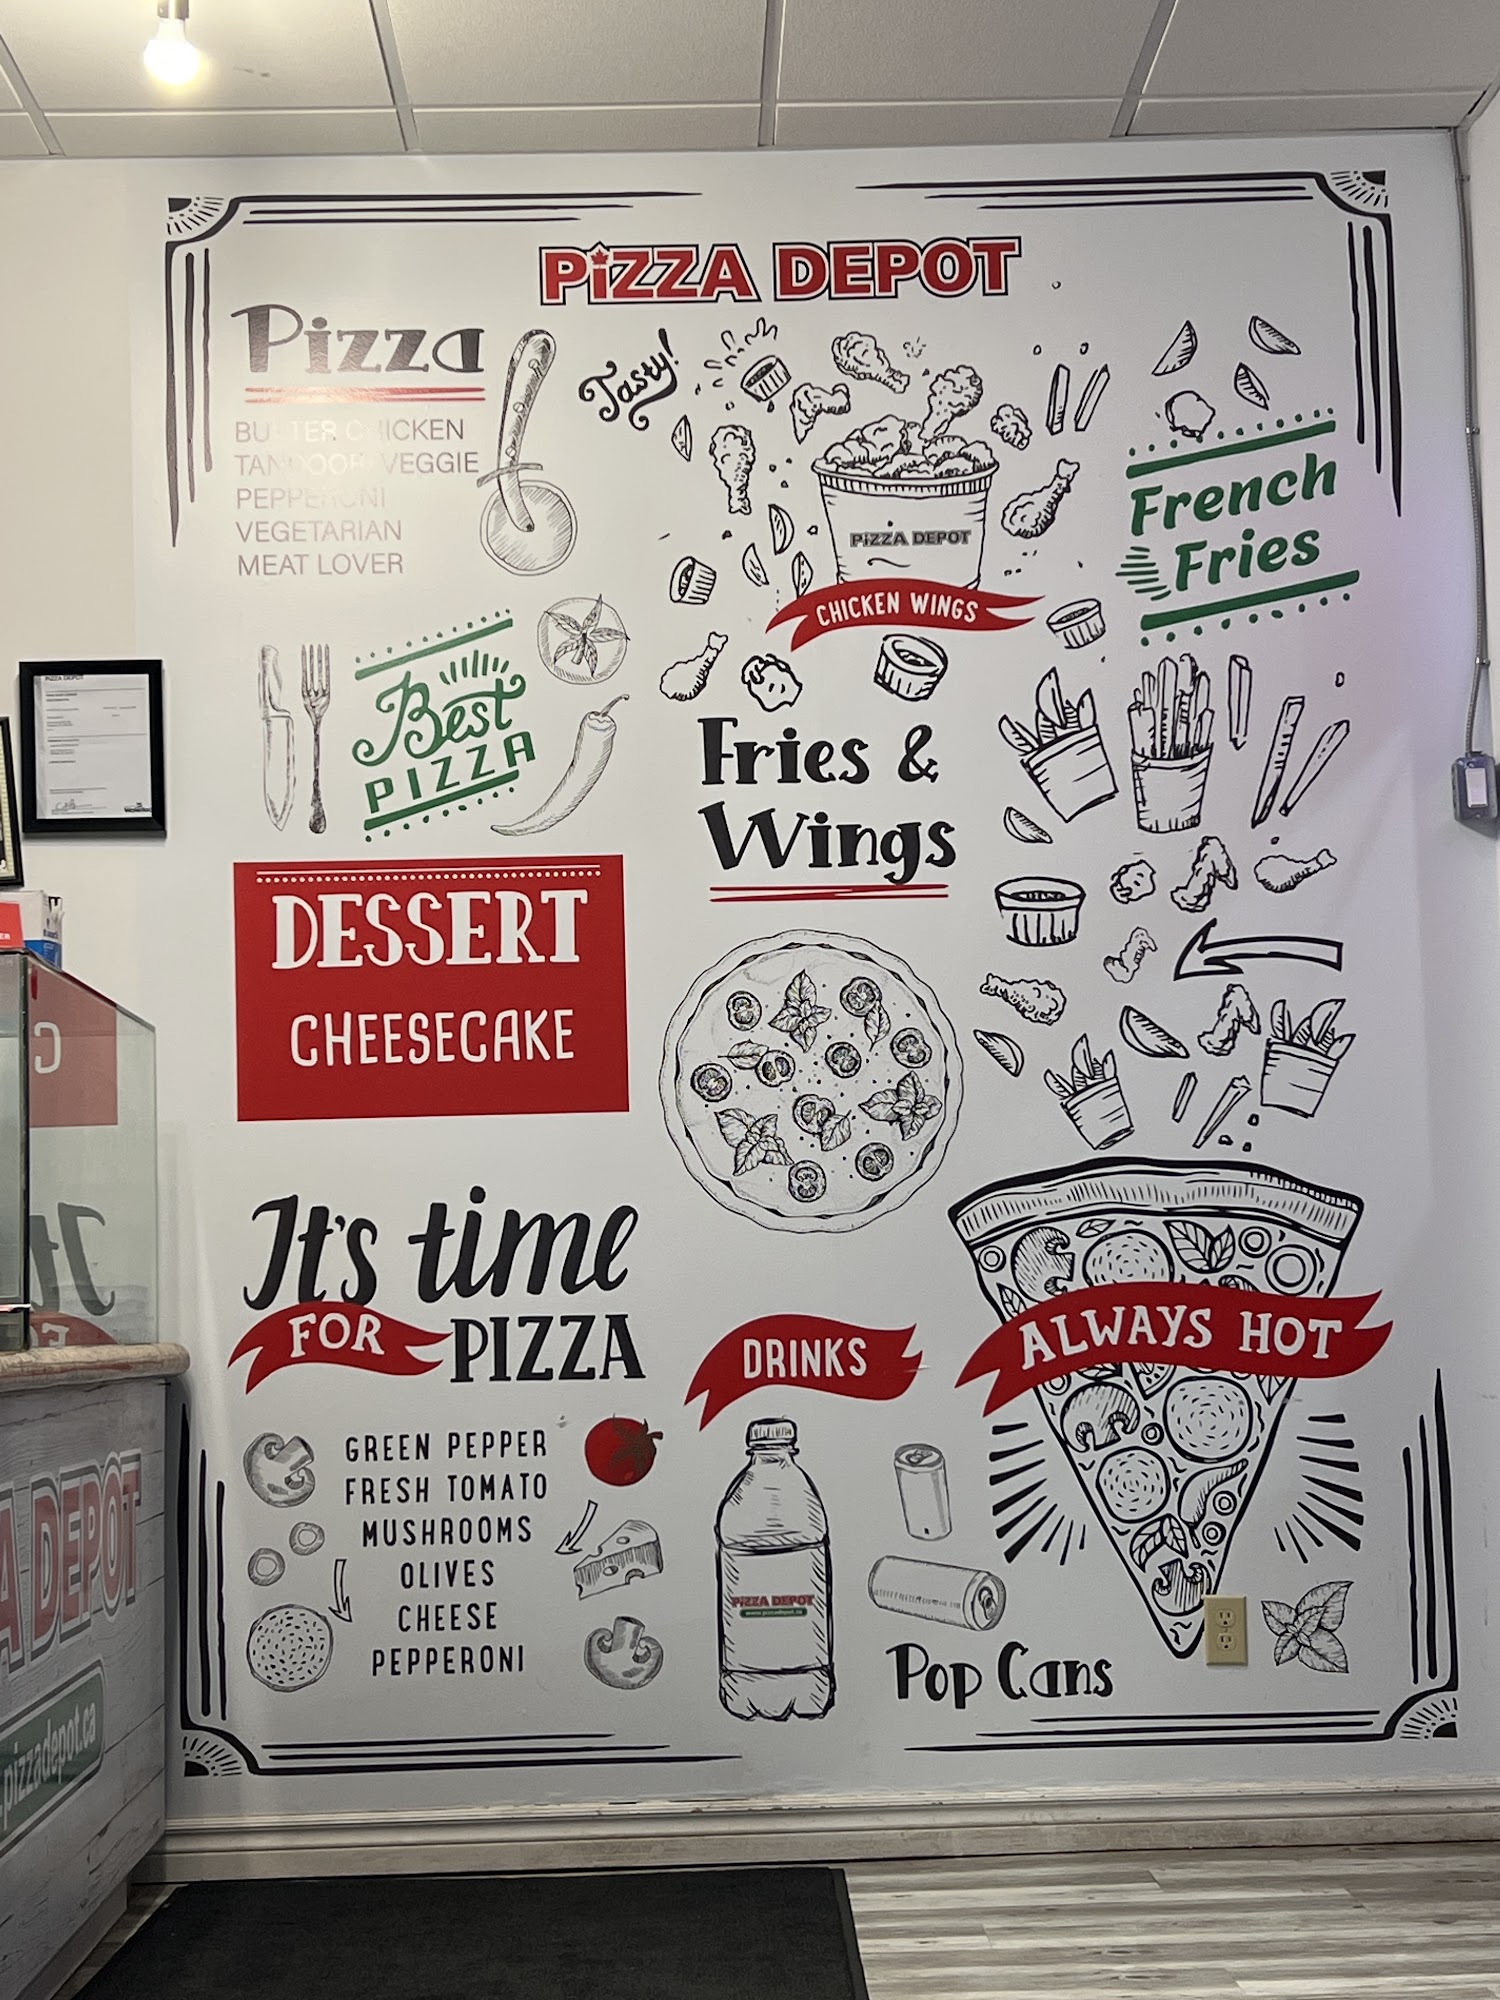 PiZZA DEPOT
Pizza
BUTTER CHICKEN
TANDOORI VEGGIE
PEPPERONI
VEGETARIAN
MEAT LOVER
Tasty!
PiZZA DEPOT
CHICKEN WINGS
French
Fries
Best
PIZZA
Fries &
Wings
DESSERT
CHEESECAKE
It's time
FOR PIZZA
GREEN PEPPER
FRESH TOMATO
MUSHROOMS
OLIVES
CHEESE
PEPPERONI
DRINKS
PiZZA DEPOT
www.pizzadepot.ca
Pop Cans
ALWAYS HOT
PIZZA DEPOT
A DEPOT
pizzadepot.ca